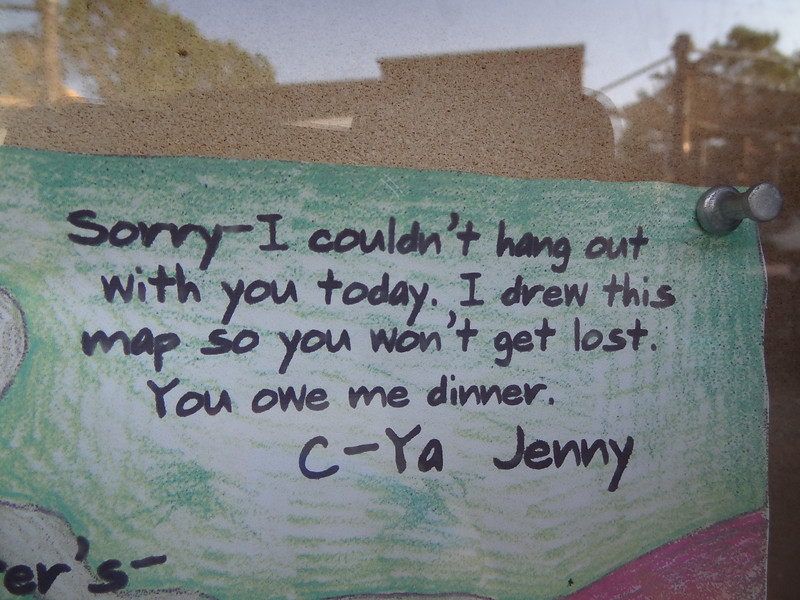 Sorry-I couldn't hang out
with you today. I drew this
map so you won't get lost.
You owe me dinner.
C-Ya Jenny
er's-